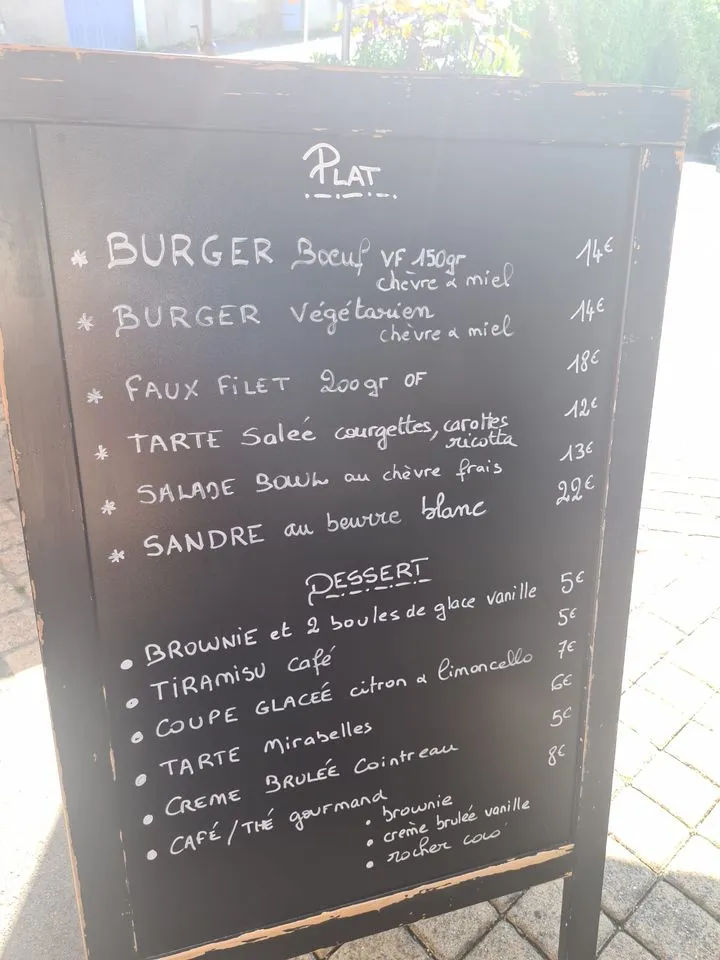 PLAT
* BURGER Boeuf VF 150gr 14€
chèvre & miel
* BURGER Végétarien 14€
chèvre & miel
* FAUX FILET 200gr OF 18€
* TARTE Saleé courgettes, carottes 12€
ricotta
* SALADE BOWL au chèvre frais 13€
* SANDRE au beurre blanc 22€
DESSERT
• BROWNIE et 2 boules de glace vanille 5€
• TIRAMISU café 5€
• COUPE GLACEÉ citron & limoncello 7€
• TARTE Mirabelles 6€
• CREME BRULÉE Cointreau 5€
• CAFÉ / THÉ gourmand 8€
• brownie
• crème brulée vanille
• rocher coco